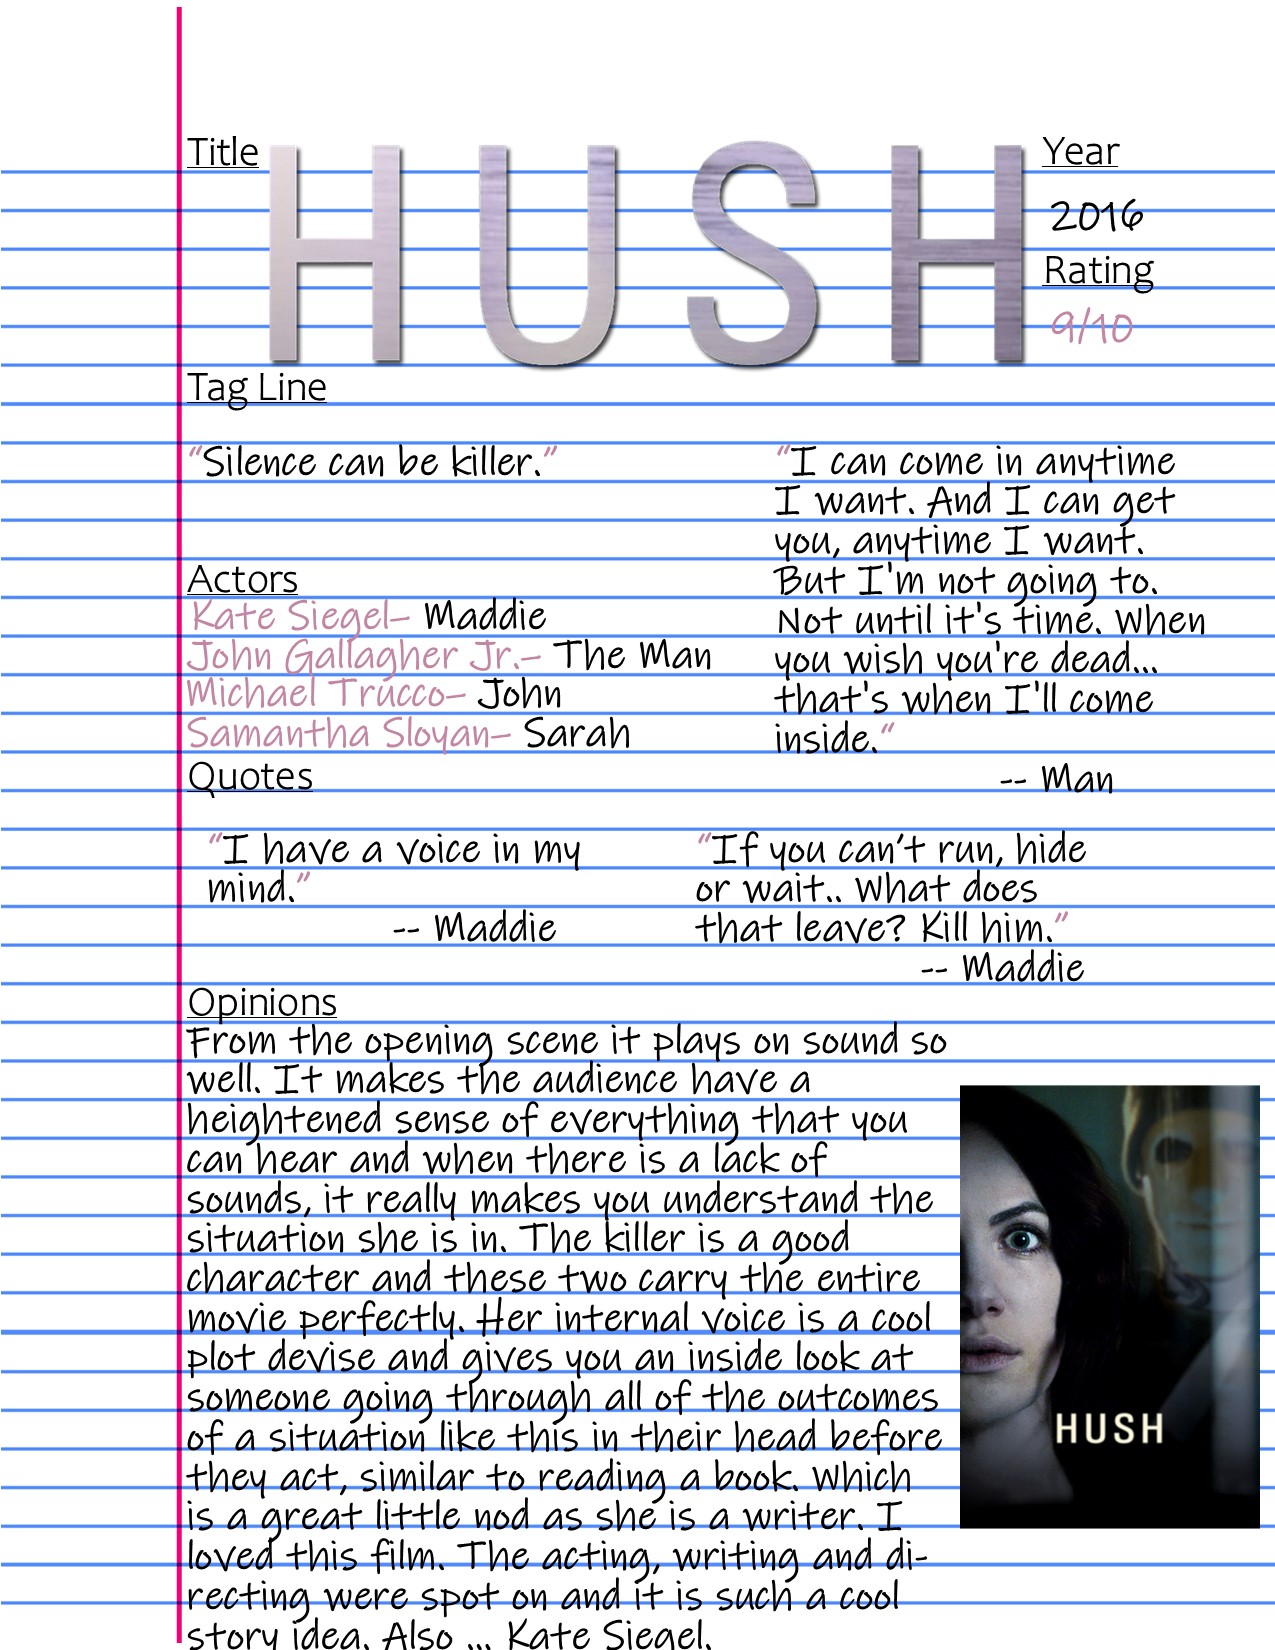 Title
HUSH
Year
2016
Rating
9/10
Tag Line
“Silence can be killer.”
Actors
Kate Siegel– Maddie
John Gallagher Jr.– The Man
Michael Trucco– John
Samantha Sloyan– Sarah
“I can come in anytime
I want. And I can get
you, anytime I want.
But I'm not going to.
Not until it's time. When
you wish you're dead...
that's when I'll come
inside.”
-- Man
Quotes
“I have a voice in my
mind.”
-- Maddie
“If you can’t run, hide
or wait.. What does
that leave? Kill him.”
-- Maddie
Opinions
From the opening scene it plays on sound so
well. It makes the audience have a
heightened sense of everything that you
can hear and when there is a lack of
sounds, it really makes you understand the
situation she is in. The killer is a good
character and these two carry the entire
movie perfectly. Her internal voice is a cool
plot devise and gives you an inside look at
someone going through all of the outcomes
of a situation like this in their head before
they act, similar to reading a book. Which
is a great little nod as she is a writer. I
loved this film. The acting, writing and di-
recting were spot on and it is such a cool
story idea. Also ... Kate Siegel.
HUSH